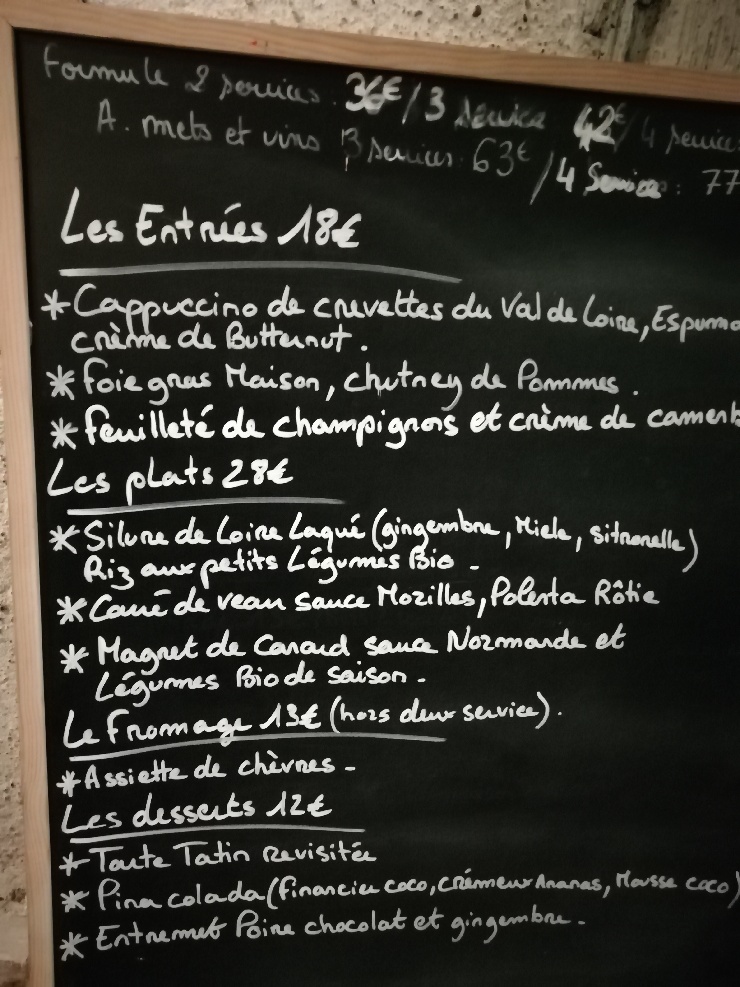 Formule 2 services : 36€ / 3 service 42€ / 4 service
A. mets et vins 3 services : 63€ / 4 Services : 77
Les Entrées 18€
* Cappuccino de crevettes du Val de Loire, Espuma
crème de Butternut.
* Foie gras Maison, chutney de Pommes.
* Feuilleté de champignons et crème de camemb
Les plats 28€
* Silure de Loire Laqué (gingembre, Miele, sitronelle)
Riz aux petits Légumes Bio -
* Carré de veau sauce Morilles, Polenta Rôtie
* Magret de Canard sauce Normande et
Légumes Bio de saison -
Le Fromage 13€ (hors deux service).
* Assiette de chèvres -
Les desserts 12€
* Tarte Tatin Revisitée
* Pina colada (financier coco, crémeux Ananas, Mousse coco)
* Entremet Poire chocolat et gingembre -